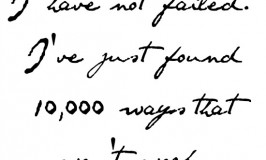 I have not failed.
I've just found
10,000 ways that
won't work